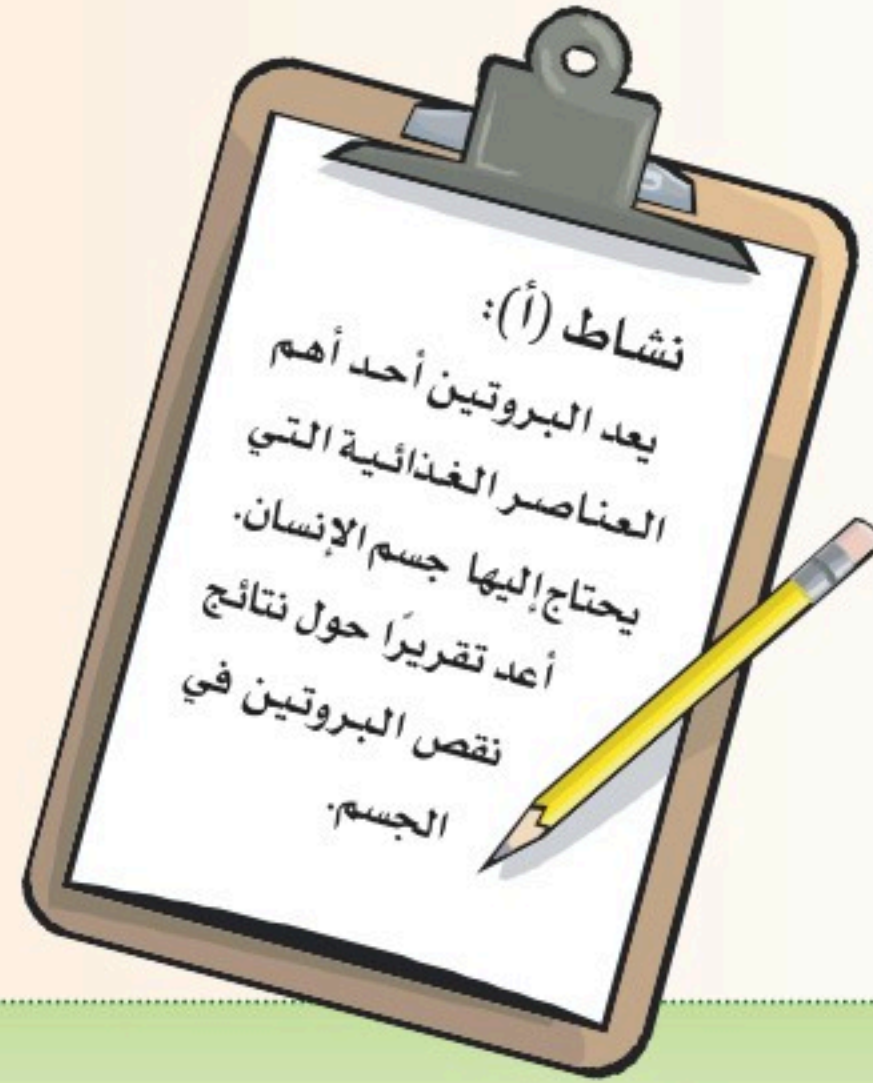 نشاط (أ):
يعد البروتين أحد أهم
العناصر الغذائية التي
يحتاج إليها جسم الإنسان.
أعد تقريرًا حول نتائج
نقص البروتين في
الجسم.